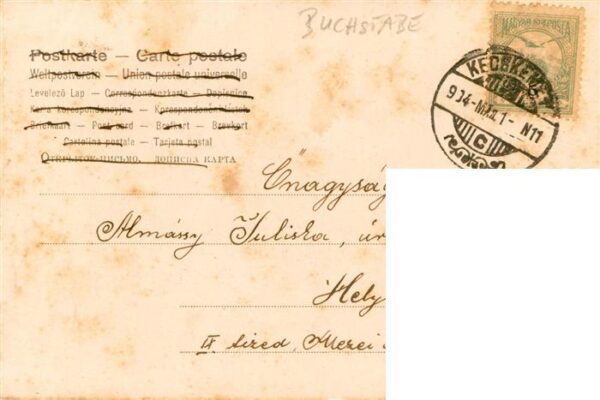 BUCHSTABE
MAGYAR KIR. POSTA
KECSKEMÉT
904 MÁJ. 1 - N11
C
Postkarte — Carte postale
Weltpostverein — Union postale universelle
Levelező Lap — Correspondenzkarte — Dopisnice
Karta korespondencyjna — Korespondenční lístek
Briefkaart — Post card — Brefkort — Brevkort
Cartolina postale — Tarjeta postal
Открытое письмо, дописна карта
Őnagysá
Almássy Juliska, úr
Hely
IX tized,